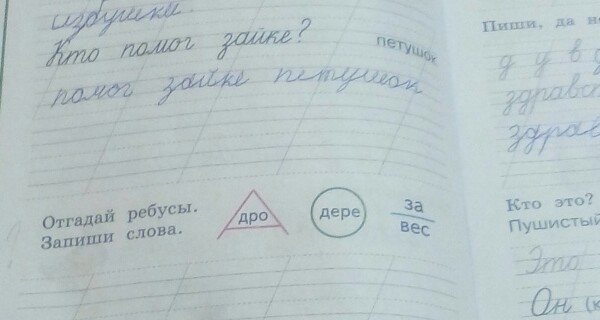 избушки.
Кто помог зайке?
петушок
помог зайке петушок
Отгадай ребусы.
Запиши слова.
дро
дере
за
вес
Пиши, да не
д у в д
здравст
здрав
Кто это?
Пушистый
Это
Он (к